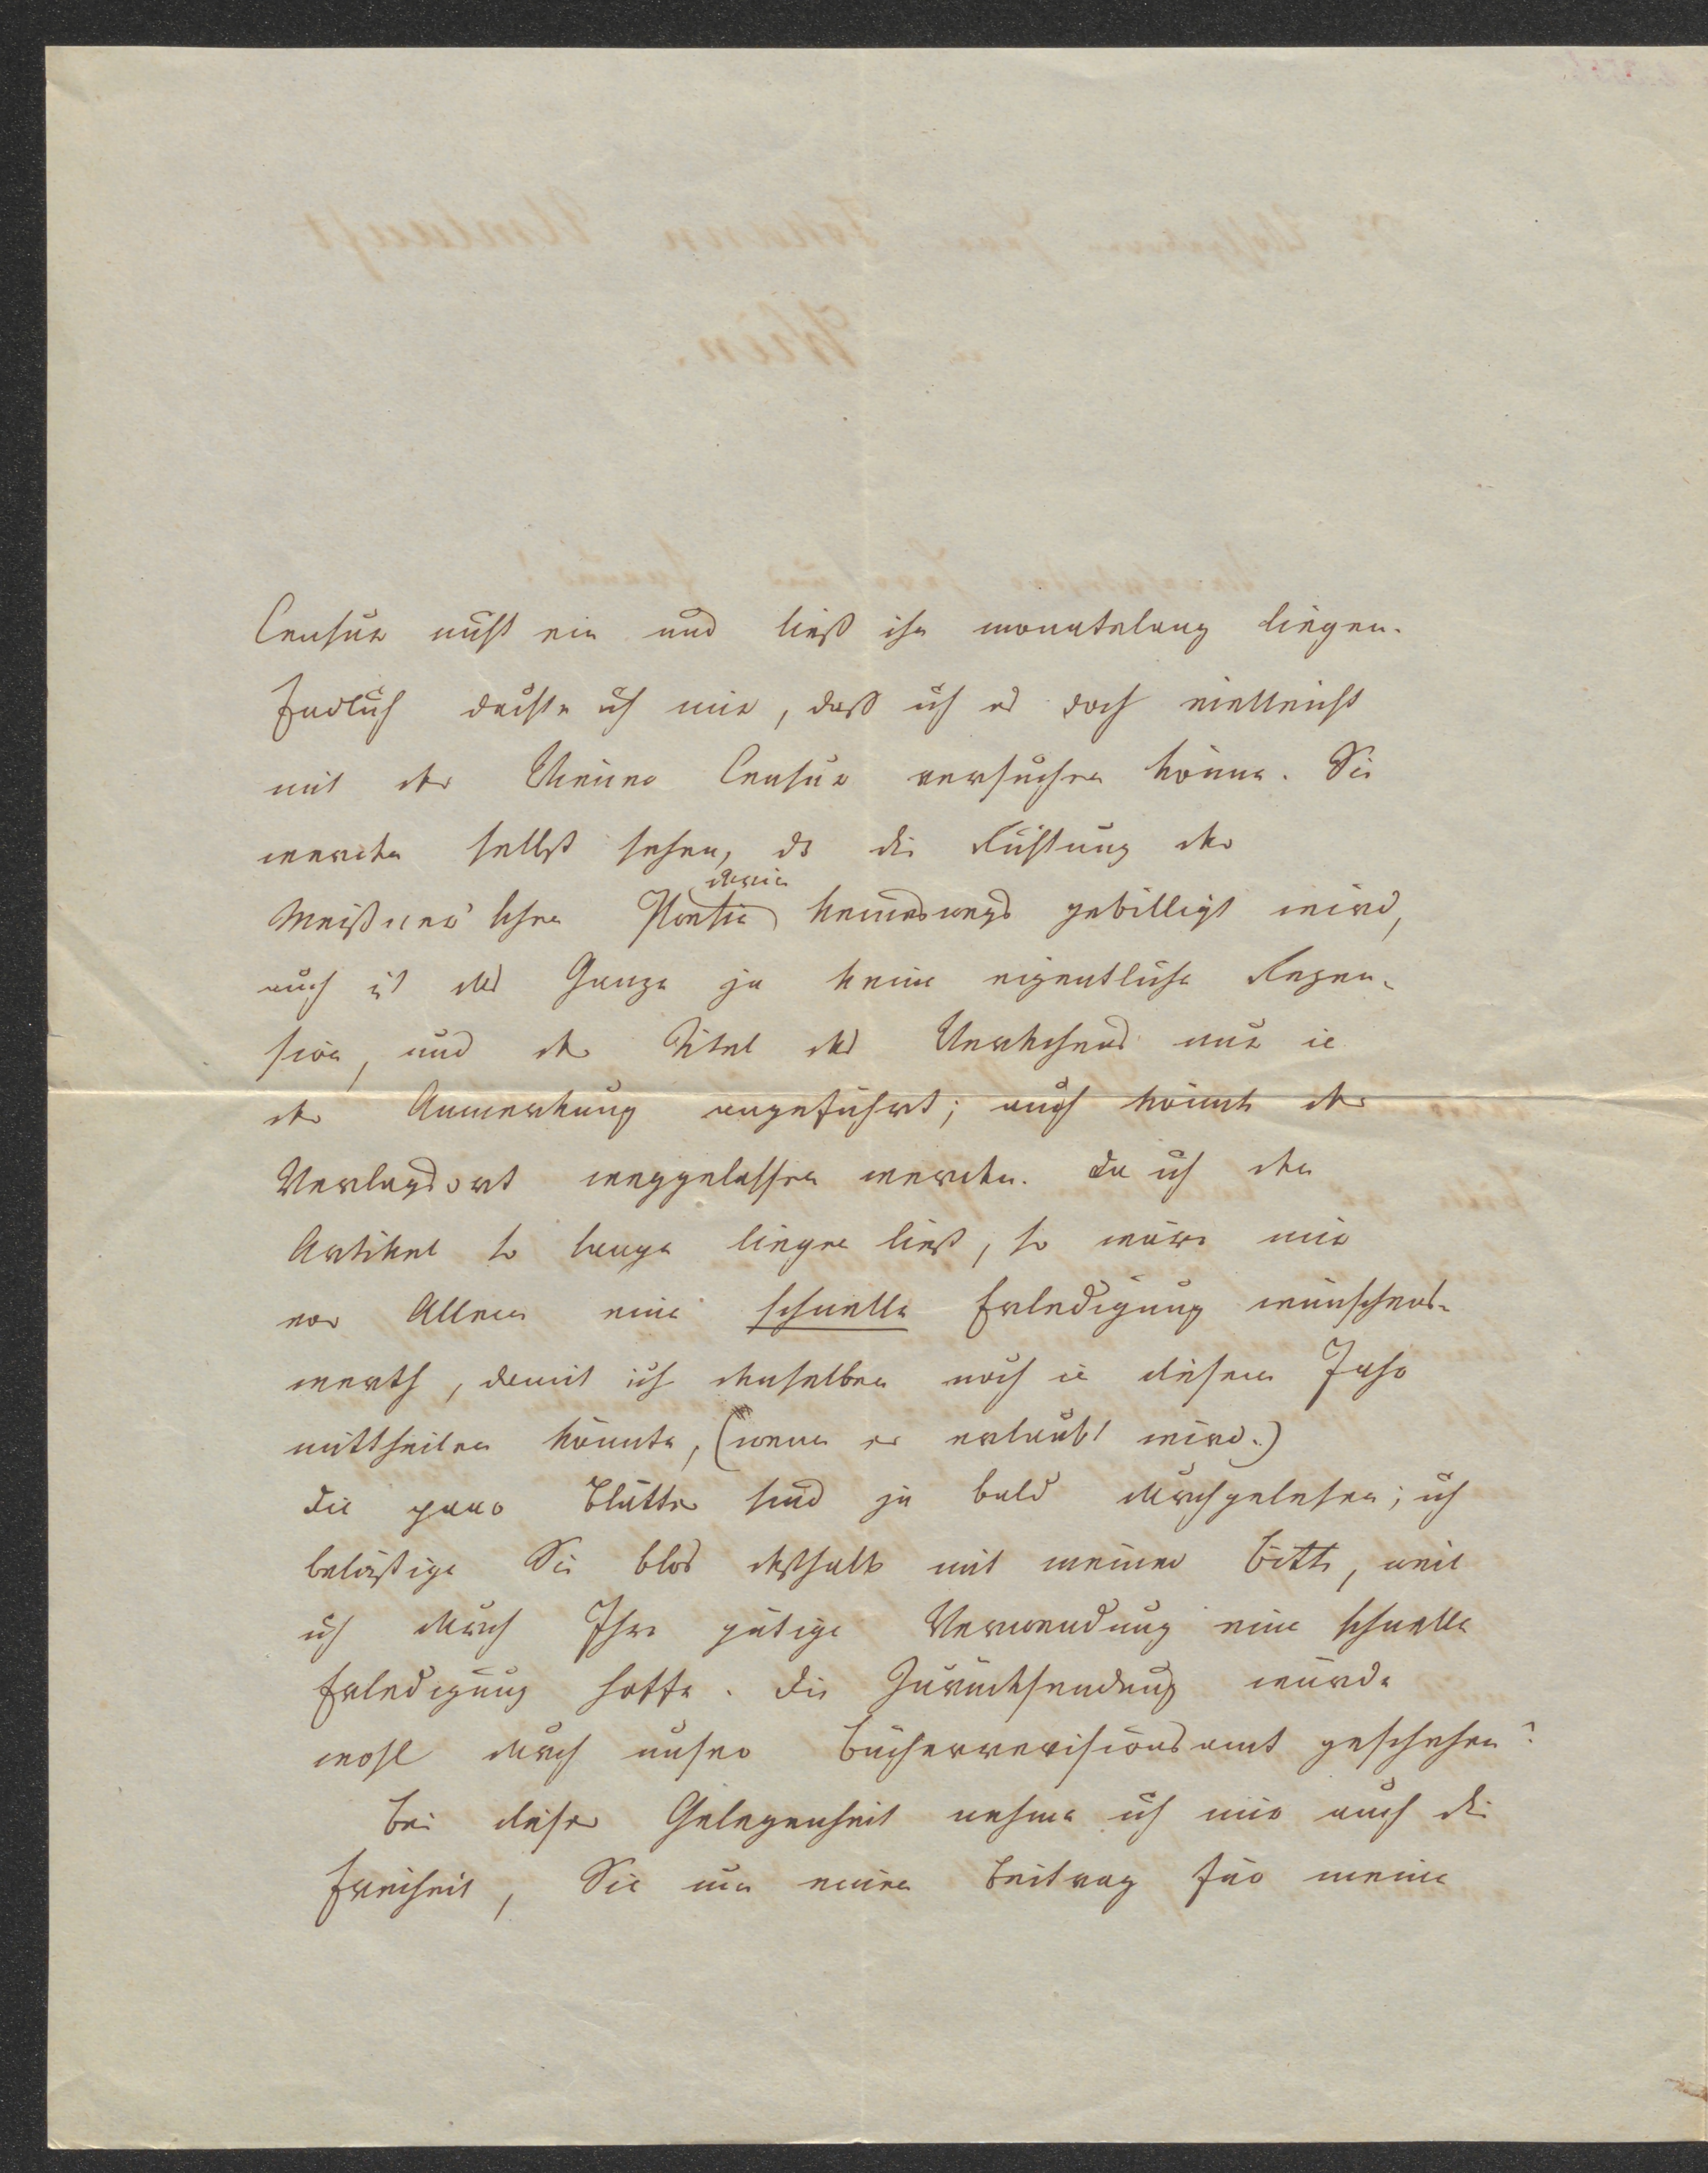 Censur nicht ein und ließ ihn monatelang liegen.
Endlich dachte ich mir, daß ich es doch vielleicht
mit der Wiener Censur versuchen könne. Sie
werden selbst sehen, ds die Richtung der
Meißner'schen Poesie darin keineswegs gebilligt wird,
auch ist das Ganze ja keine eigentliche Rezen-
sion, und der Titel des Werkchens nur in
der Anmerkung angeführt; auch könnte der
Verlagsort weggelassen werden. Da ich den
Artikel so lange liegen ließ, so wäre mir
vor Allem eine schnelle Erledigung wünschens-
werth, damit ich denselben noch in diesem Jahr
mittheilen könnte, (wenn er erlaubt wird.)
Die paar Blätter sind ja bald durchgelesen; ich
belästige Sie blos deßhalb mit meiner Bitte, weil
ich durch Ihre gütige Verwendung eine schnelle
Erledigung hoffe. Die Zurücksendung würde
wohl durch unser Bücherrevisionsamt geschehen?
Bei dieser Gelegenheit nehme ich mir auch die
Freiheit, Sie um einen Beitrag für meine